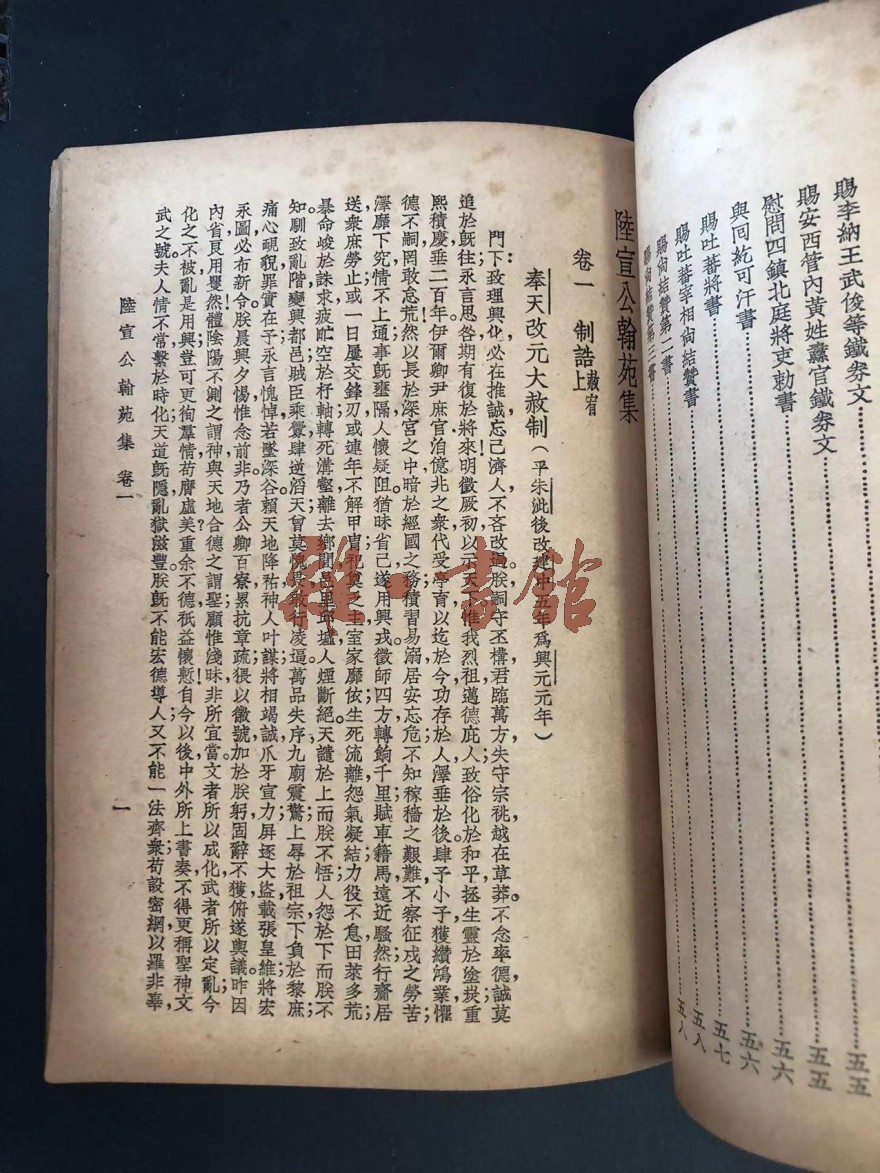 賜李納王武俊等鐵券文……五五
賜安西管內黃姓纛官鐵券文……五五
慰問四鎮北庭將吏勅書……五六
與回紇可汗書……五六
賜吐蕃將書……五七
賜吐蕃宰相尙結贊書……五八
賜尙結贊第二書
賜尙結贊第三書……五八
陸宣公翰苑集
卷一 制誥上 赦宥
奉天改元大赦制(平朱泚後改建中五年爲興元元年)
門下致理興化必在推誠忘己濟人不吝改過朕嗣守丕構君臨萬方失守宗祧越在草莽不念率德誠莫
追於旣往永言思咎期有復於將來明徵厥初以示天下惟我烈祖邁德庇人致俗化於和平拯生靈於塗炭重
熙積慶垂二百年伊爾卿尹庶官洎億兆之衆代受亭育以迄於今功存於人澤垂於後肆予小子獲纘鴻業懼
德不嗣罔敢怠荒然以長於深宮之中暗於經國之務積習易溺居安忘危不知稼穡之艱難不察征戍之勞苦
澤靡下究情不上通事旣壅隔人懷疑阻猶昧省己遂用興戎徵師四方轉餉千里賦車籍馬遠近騷然行齎居
送衆庶勞止或一日屢交鋒刃或連年不解甲冑祀奠乏主室家靡依生死流離怨氣凝結力役不息田萊多荒
暴命峻於誅求疲甿空於杼軸轉死溝壑離去鄉閭邑里邱墟人煙斷絕天譴於上而朕不悟人怨於下而朕不
知馴致亂階變興都邑賊臣乘釁肆逆滔天曾莫愧畏敢行凌逼萬品失序九廟震驚上辱於祖宗下負於黎庶
痛心靦貌罪實在予永言愧悼若墜深谷賴天地降祐神人叶謀將相竭誠爪牙宣力屏逐大盜載張皇維將宏
永圖必布新令朕晨興夕惕惟念前非乃者公卿百寮累抗章疏猥以徽號加於朕躬固辭不獲俯遂輿議昨因
內省良用矍然體陰陽不測之謂神與天地合德之謂聖顧惟淺昧非所宜當文者所以成化武者所以定亂今
化之不被亂是用興豈可更徇羣情苟膺虛美重余不德祇益懷慙自今以後中外所上書奏不得更稱聖神文
武之號夫人情不常繫於時化天道旣隱亂獄滋豐朕旣不能宏德導人又不能一法齊衆苟設密網以羅非辜
陸宣公翰苑集 卷一
一
書館